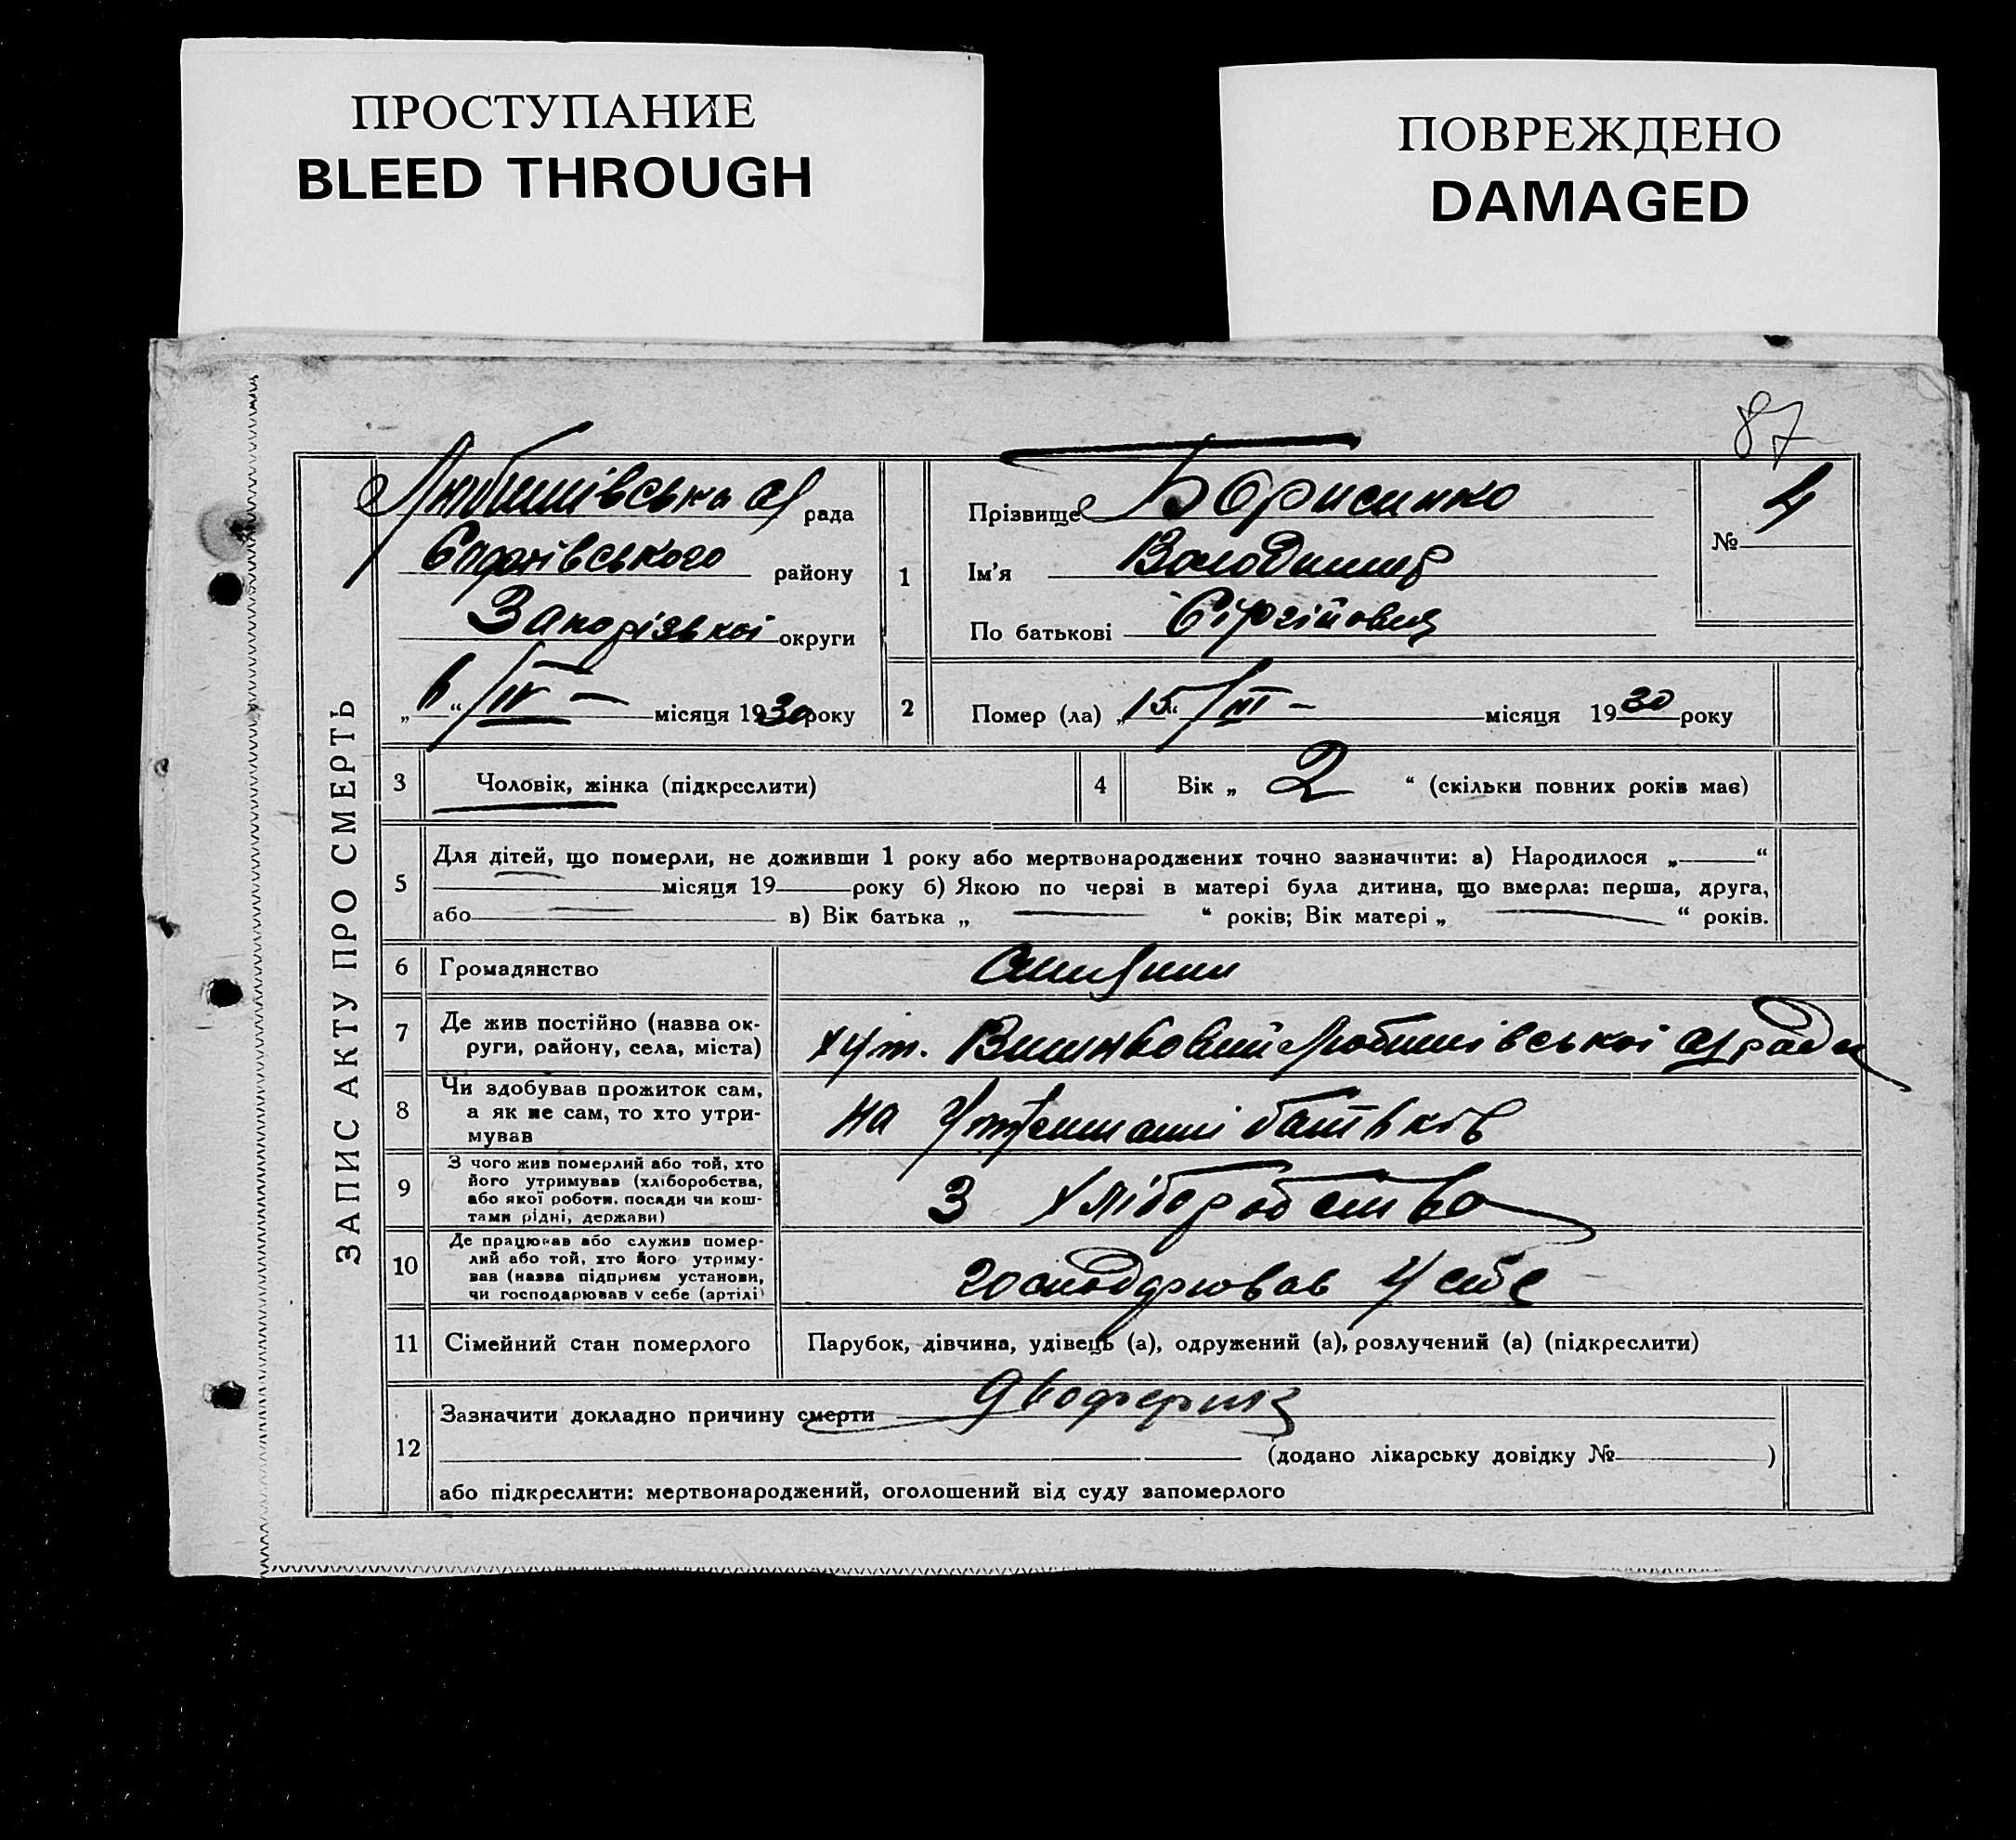 ПРОСТУПАНИЕ
BLEED THROUGH
ПОВРЕЖДЕНО
DAMAGED
87
ЗАПИС АКТУ ПРО СМЕРТЬ
Любимівська с/рада
району
Запорізької округи
"6" / IV — місяця 1930 року
1
Прізвище Борисинко
Ім'я Володимир
По батькові Сіргійович
№ 4
2
Помер (ла) „15“ / III — місяця 1930 року
3 Чоловік, жінка (підкреслити)
4 Вік „ 2 “ (скільки повних років має)
5
Для дітей, що померли, не доживши 1 року або мертвонароджених точно зазначити: а) Народилося „——“
місяця 19 року б) Якою по черзі в матері була дитина, що вмерла: перша, друга,
або в) Вік батька „ “ років; Вік матері „ “ років.
6 Громадянство
7 Де жив постійно (назва ок-
руги, району, села, міста)
хут. Вишньовий Любимівської с/ради
8 Чи здобував прожиток сам,
а як не сам, то хто утри-
мував
на утриманні батьків
9 З чого жив померлий або той, хто
його утримував (хліборобства,
або якої роботи, посади чи кош-
тами рідні, держави)
З хліборобства
10 Де працював або служив помер-
лий або той, хто його утриму-
вав (назва підприєм установи,
чи господарював у себе (артілі)
господрював у себе
11 Сімейний стан померлого
Парубок, дівчина, удівець (а), одружений (а), розлучений (а) (підкреслити)
12
Зазначити докладно причину смерти
(додано лікарську довідку № )
або підкреслити: мертвонароджений, оголошений від суду запомерлого